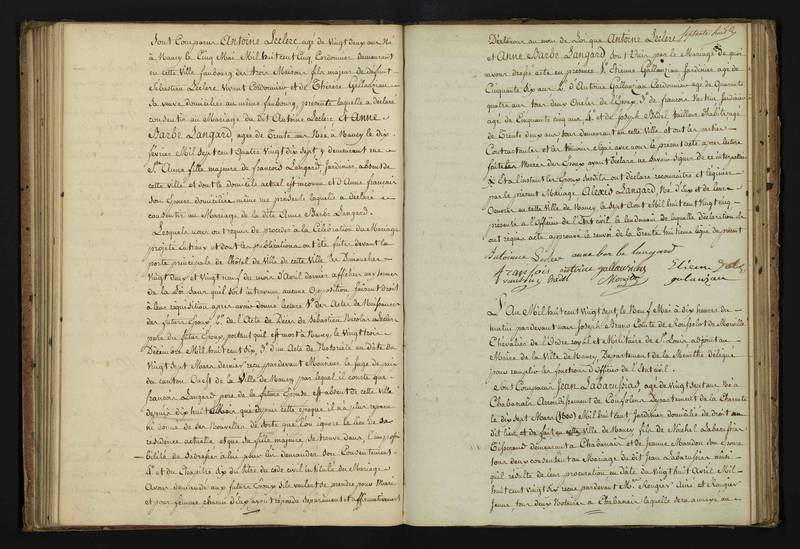 Sont Comparus Antoine Leclerc agé de Vingt deux ans Né
à Nancy le Cinq Mai Mil huit cent Cinq Cordonnier demeurant
en cette Ville faubourg des trois Maisons fils majeur de défunt
Sébastien Leclerc Vivant Cordonnier et de Thérèse
Sa veuve domiciliée au même faubourg, présente laquelle a déclaré
consentir au Mariage du dit Antoine Leclerc Et Anne
Barbe Langard, agée de Trente ans Née à Nancy le dix
février Mil sept cent quatre Vingt dix sept y demeurant rue
Ste Anne fille majeure de françois Langard, Jardinier absent de
cette ville et dont le domicile actuel est inconnu et d'Anne françois
Son Epouse domiciliée même rue présente laquelle a déclaré
consentir au Mariage de la dite Anne Barbe Langard.
Lesquels nous ont requis de procéder à la Célébration du Mariage
projeté entr'eux et dont les publications ont été faites devant la
porte principale de l'hôtel de Ville de cette Ville les Dimanches
Vingt deux et Vingt neuf du mois d'Avril dernier affichées aux termes
de la Loi sans qu'il soit intervenu aucune Opposition faisant Droit
à leur réquisition après avoir donné lecture 1° des Actes de Naissance
des futurs Epoux 2° de l'Acte de Décès de Sébastien Nicolas Leclerc
père du futur Epoux, portant qu'il est mort à Nancy, le Vingt trois
Décembre Mil huit cent dix 3° d'un Acte de Notoriété en date du
Vingt Sept Mars dernier reçu pardevant Monsieur le Juge de paix
du canton Ouest de la Ville de Nancy par lequel il conste que
françois Langard père de la future Epouse est absent de cette Ville
depuis dix huit ans que depuis cette époque il n'a plus
donné de ses Nouvelles de sorte que l'on ignore le lieu de sa
résidence actuelle et que sa fille majeure se trouve dans l'impossi-
-bilité de s'adresser à lui pour lui demander son Consentement
4° et du Chapitre six du titre du code civil intitulé du Mariage
Avons demandé aux futurs Epoux s'ils veulent se prendre pour Mari
et pour femme chacun d'eux ayant répondu séparément et affirmativement
Déclarons au nom de la Loi que Antoine Leclerc
et Anne Barbe Langard sont Unis par le Mariage de quoi
avons dressé acte en présence 1° Etienne Jardinier agé de
Cinquante six ans 2° d'Antoine Cordonnier agé de Quarante
quatre ans tous deux Oncles de l'Epoux 3° de françois Jardinier
agé de Cinquante cinq ans 4° et de Joseph Badel tailleur d'habits agé
de Trente deux ans tous demeurant en cette Ville et ont les parties
Contractantes et les témoins signé avec nous le présent acte après lecture
faite les Mères des Epoux ayant déclaré ne savoir signer de ce interpellées
Et à l'instant les Epoux susdits ont déclaré reconnaître et légitimer
par le présent Mariage Alexis Langard Né d'eux et de leurs
Oeuvres en cette Ville de Nancy le Sept Août Mil huit cent Vingt cinq
présenté à l'Officier de l'Etat civil le lendemain de laquelle déclaration ils
ont requis acte approuvé le renvoi de la Trente huitième ligne du présent
Antoine Leclerc anne barbe langard
françois
Badel
L'An Mil huit cent Vingt sept, le Neuf Mai à dix heures du
matin pardevant nous Joseph
Chevalier de l'Ordre royal et Militaire de St Louis, adjoint au
Maire de la Ville de Nancy, Département de la Meurthe délégué
pour remplir les fonctions d'Officier de l'Etat civil.
Sont Comparus Jean Labarussias, agé de Vingt sept ans Né à
Chabanais Arrondissement de Confolens Département de la Charente
le dix sept Mars (1800) Mil huit cent Jardinier domicilié de droit au
dit lieu et de fait en cette Ville de Nancy fils de Michel Labarussias
Tisserand demeurant à Chabanais et de Jeanne Mandon son Epouse
tous deux consentant au Mariage du dit Jean Labarussias ainsi
qu'il résulte de leur procuration en date du Vingt huit Avril Mil
huit cent Vingt six reçue pardevant Me Rougier Aîné et Rougier
Jeune tous deux Notaires à Chabanais laquelle sera annexée au